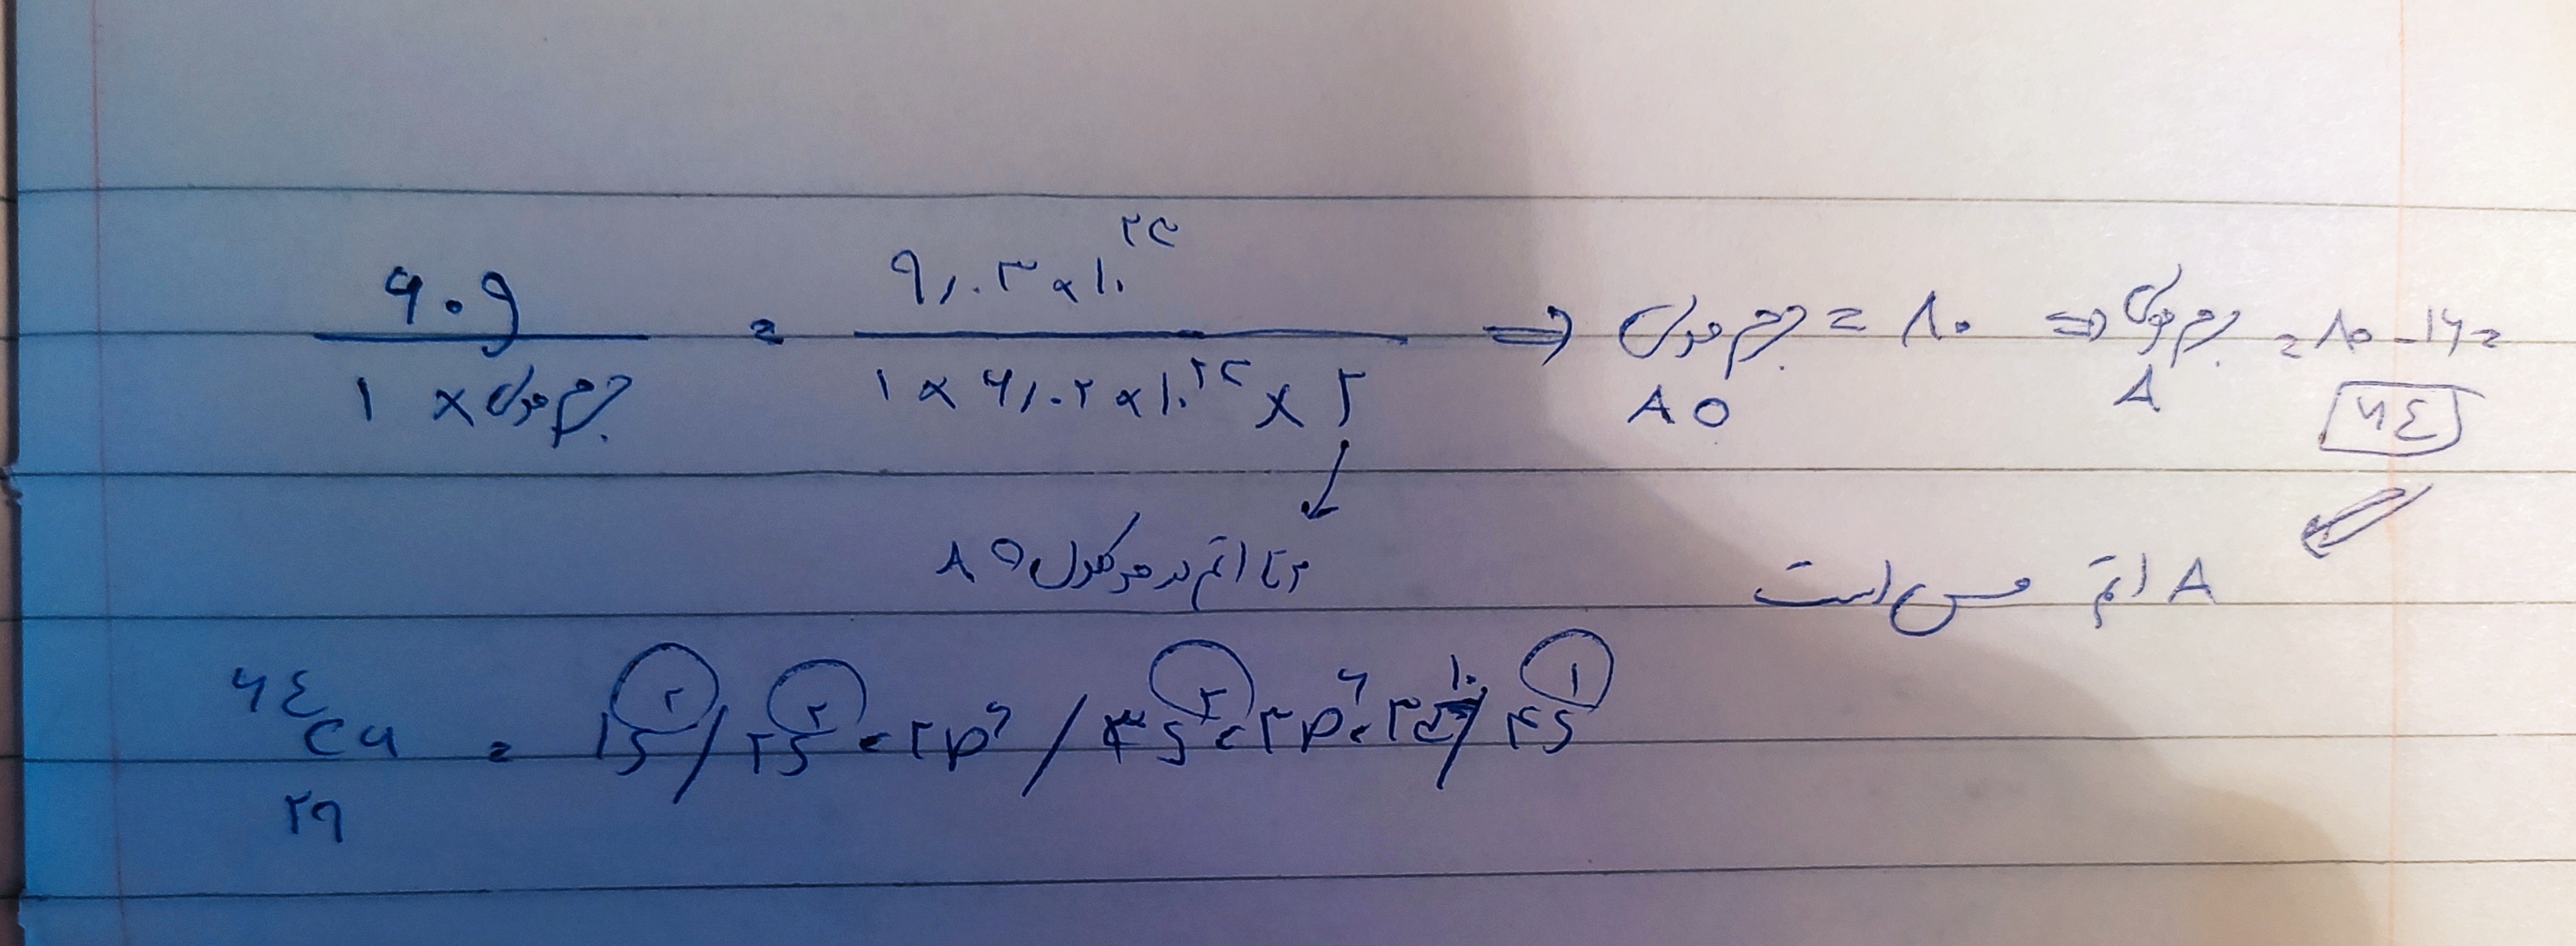 ۶۰g / ۱ × جرم مولی = ۹٫۰۳ × ۱۰^۲۳ / ۱ × ۶٫۰۲ × ۱۰^۲۳ × ۲ ⇒ جرم مولی AO = ۸۰ ⇒ جرم مولی A = ۸۰ - ۱۶ = ۶۴
۲ تا اتم در مولکول AO
A اتم مس است
۶۴ Cu ۲۹ = ۱s^۲ / ۲s^۲ ، ۲p^۶ / ۳s^۲ ، ۳p^۶ ، ۳d^۱۰ / ۴s^۱